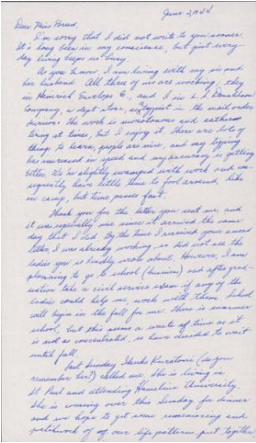 June 2, 1944
Dear Miss Breed,
I'm sorry that I did not write to you sooner.
It is long been in my conscience, but just every-
day living keeps us busy.
As you know, I am living with my sis and
her husband. All three of us are working, they
in Heinrich Envelope Co. and I in L. S. Donaldson
Company, a dept store, as typist in the mail order
division. The work is monotonous and rather
tiring at times, but I enjoy it. There are lots of
things to learn, people are nice, and my typing
has increased in speed and my accuracy is getting
better. We be slightly swamped with work and so
especially have little time to fool around, like
in camp, but time passes fast.
Thank you for the letter you sent me, and
it was especially nice since it arrived the same
day that I left. By the time I received your second
letter, I was already working, so did not see the
ladies you so kindly wrote about. However, I am
planning to go to school (business) and after grad-
uation take a civil service exam if any of the
ladies could help me, work with them. School
will begin in the fall for me. There is summer
school, but this seems a waste of time as it
is not as concentrated, so have decided to wait
until fall.
Last Sunday (do you
remember her?) called me. She is living in
St Paul and attending Hamline University.
She is coming over this Sunday for dinner
and we hope to get some reminiscing and
patchwork of our life patterns put together